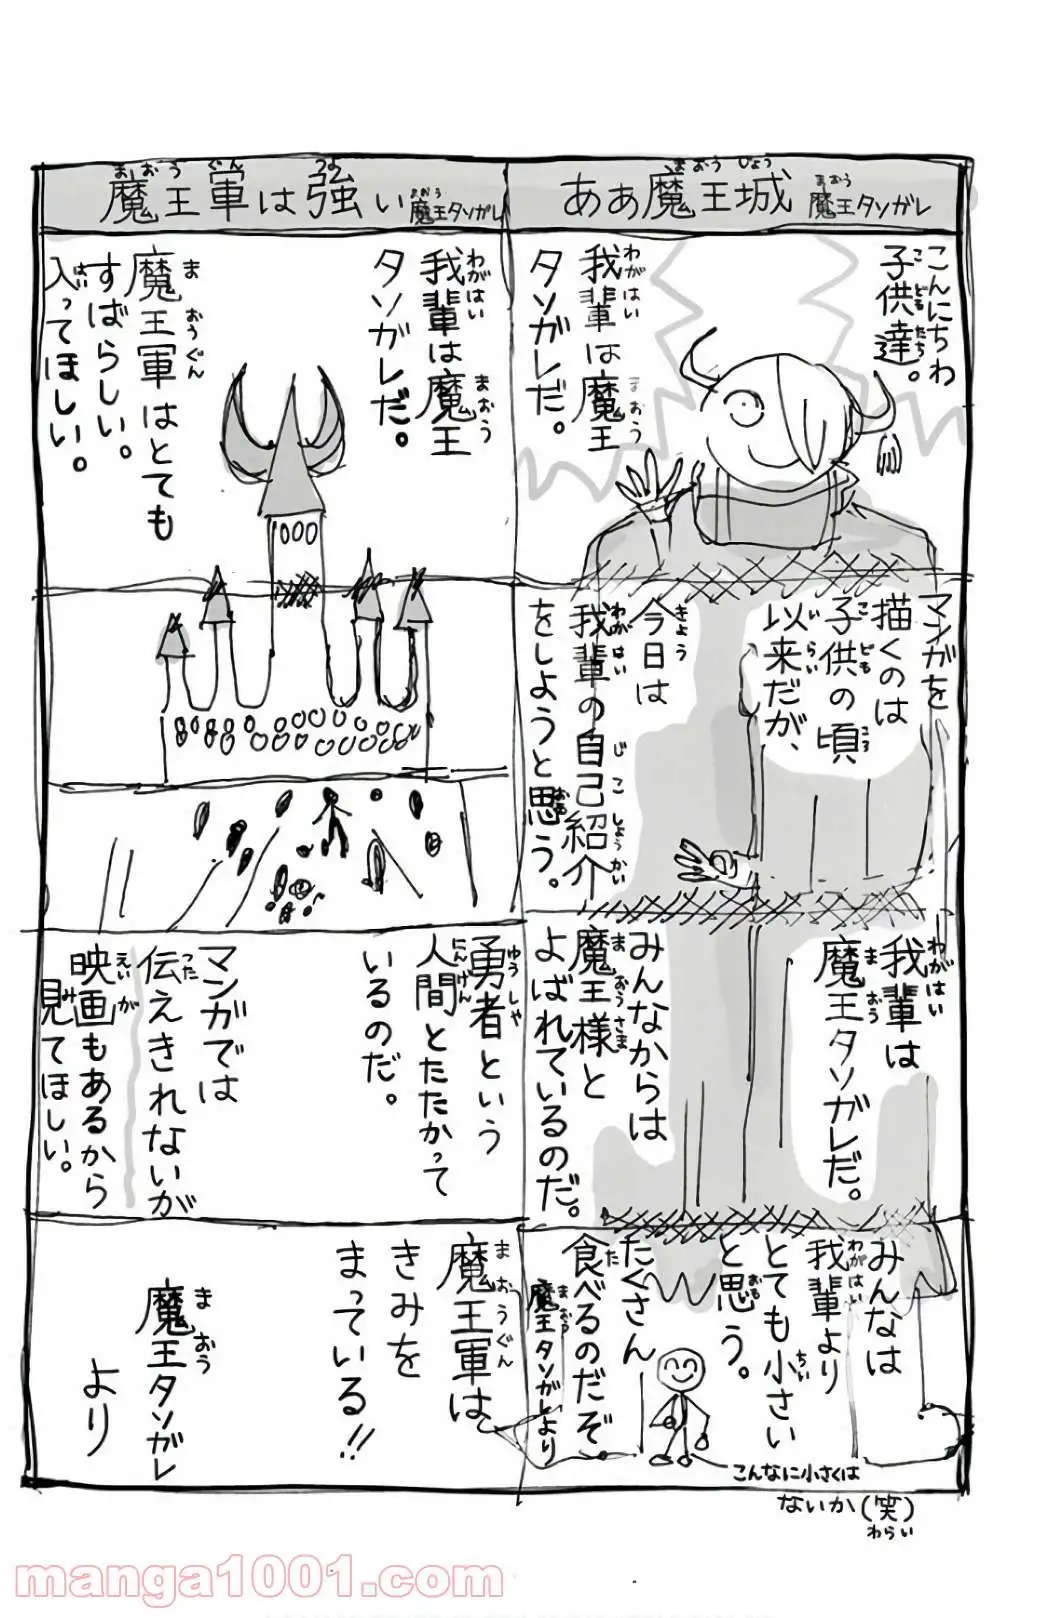 ああ魔王城 魔王タソガレ
こんにちわ
子供達。
我輩は魔王
タソガレだ。
マンガを
描くのは
子供の頃
以来だが、
今日は
我輩の自己紹介
をしようと思う。
我輩は
魔王タソガレだ。
みんなからは
魔王様と
よばれているのだ。
みんなは
我輩より
とても小さい
と思う。
たくさん
食べるのだぞ。
魔王タソガレより
こんなに小さくは
ないか(笑)
魔王軍は強い 魔王タソガレ
我輩は魔王
タソガレだ。
魔王軍はとても
すばらしい。
入ってほしい。
勇者という
人間とたたかって
いるのだ。
マンガでは
伝えきれないが
映画もあるから
見てほしい。
魔王軍は
きみを
まっている!!
魔王タソガレ
より
manga1001.com